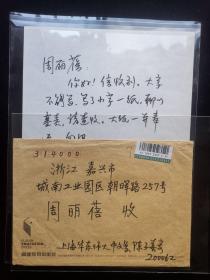 周丽蓓:
你好! 信收到, 大字
不能写, 写了小字一纸, 聊以
塞责, 请查收。大纸一并寄
314000
浙江 嘉兴市
城南工业园区朝晖路257号
周丽蓓 收
上海华东师大中文系
200062